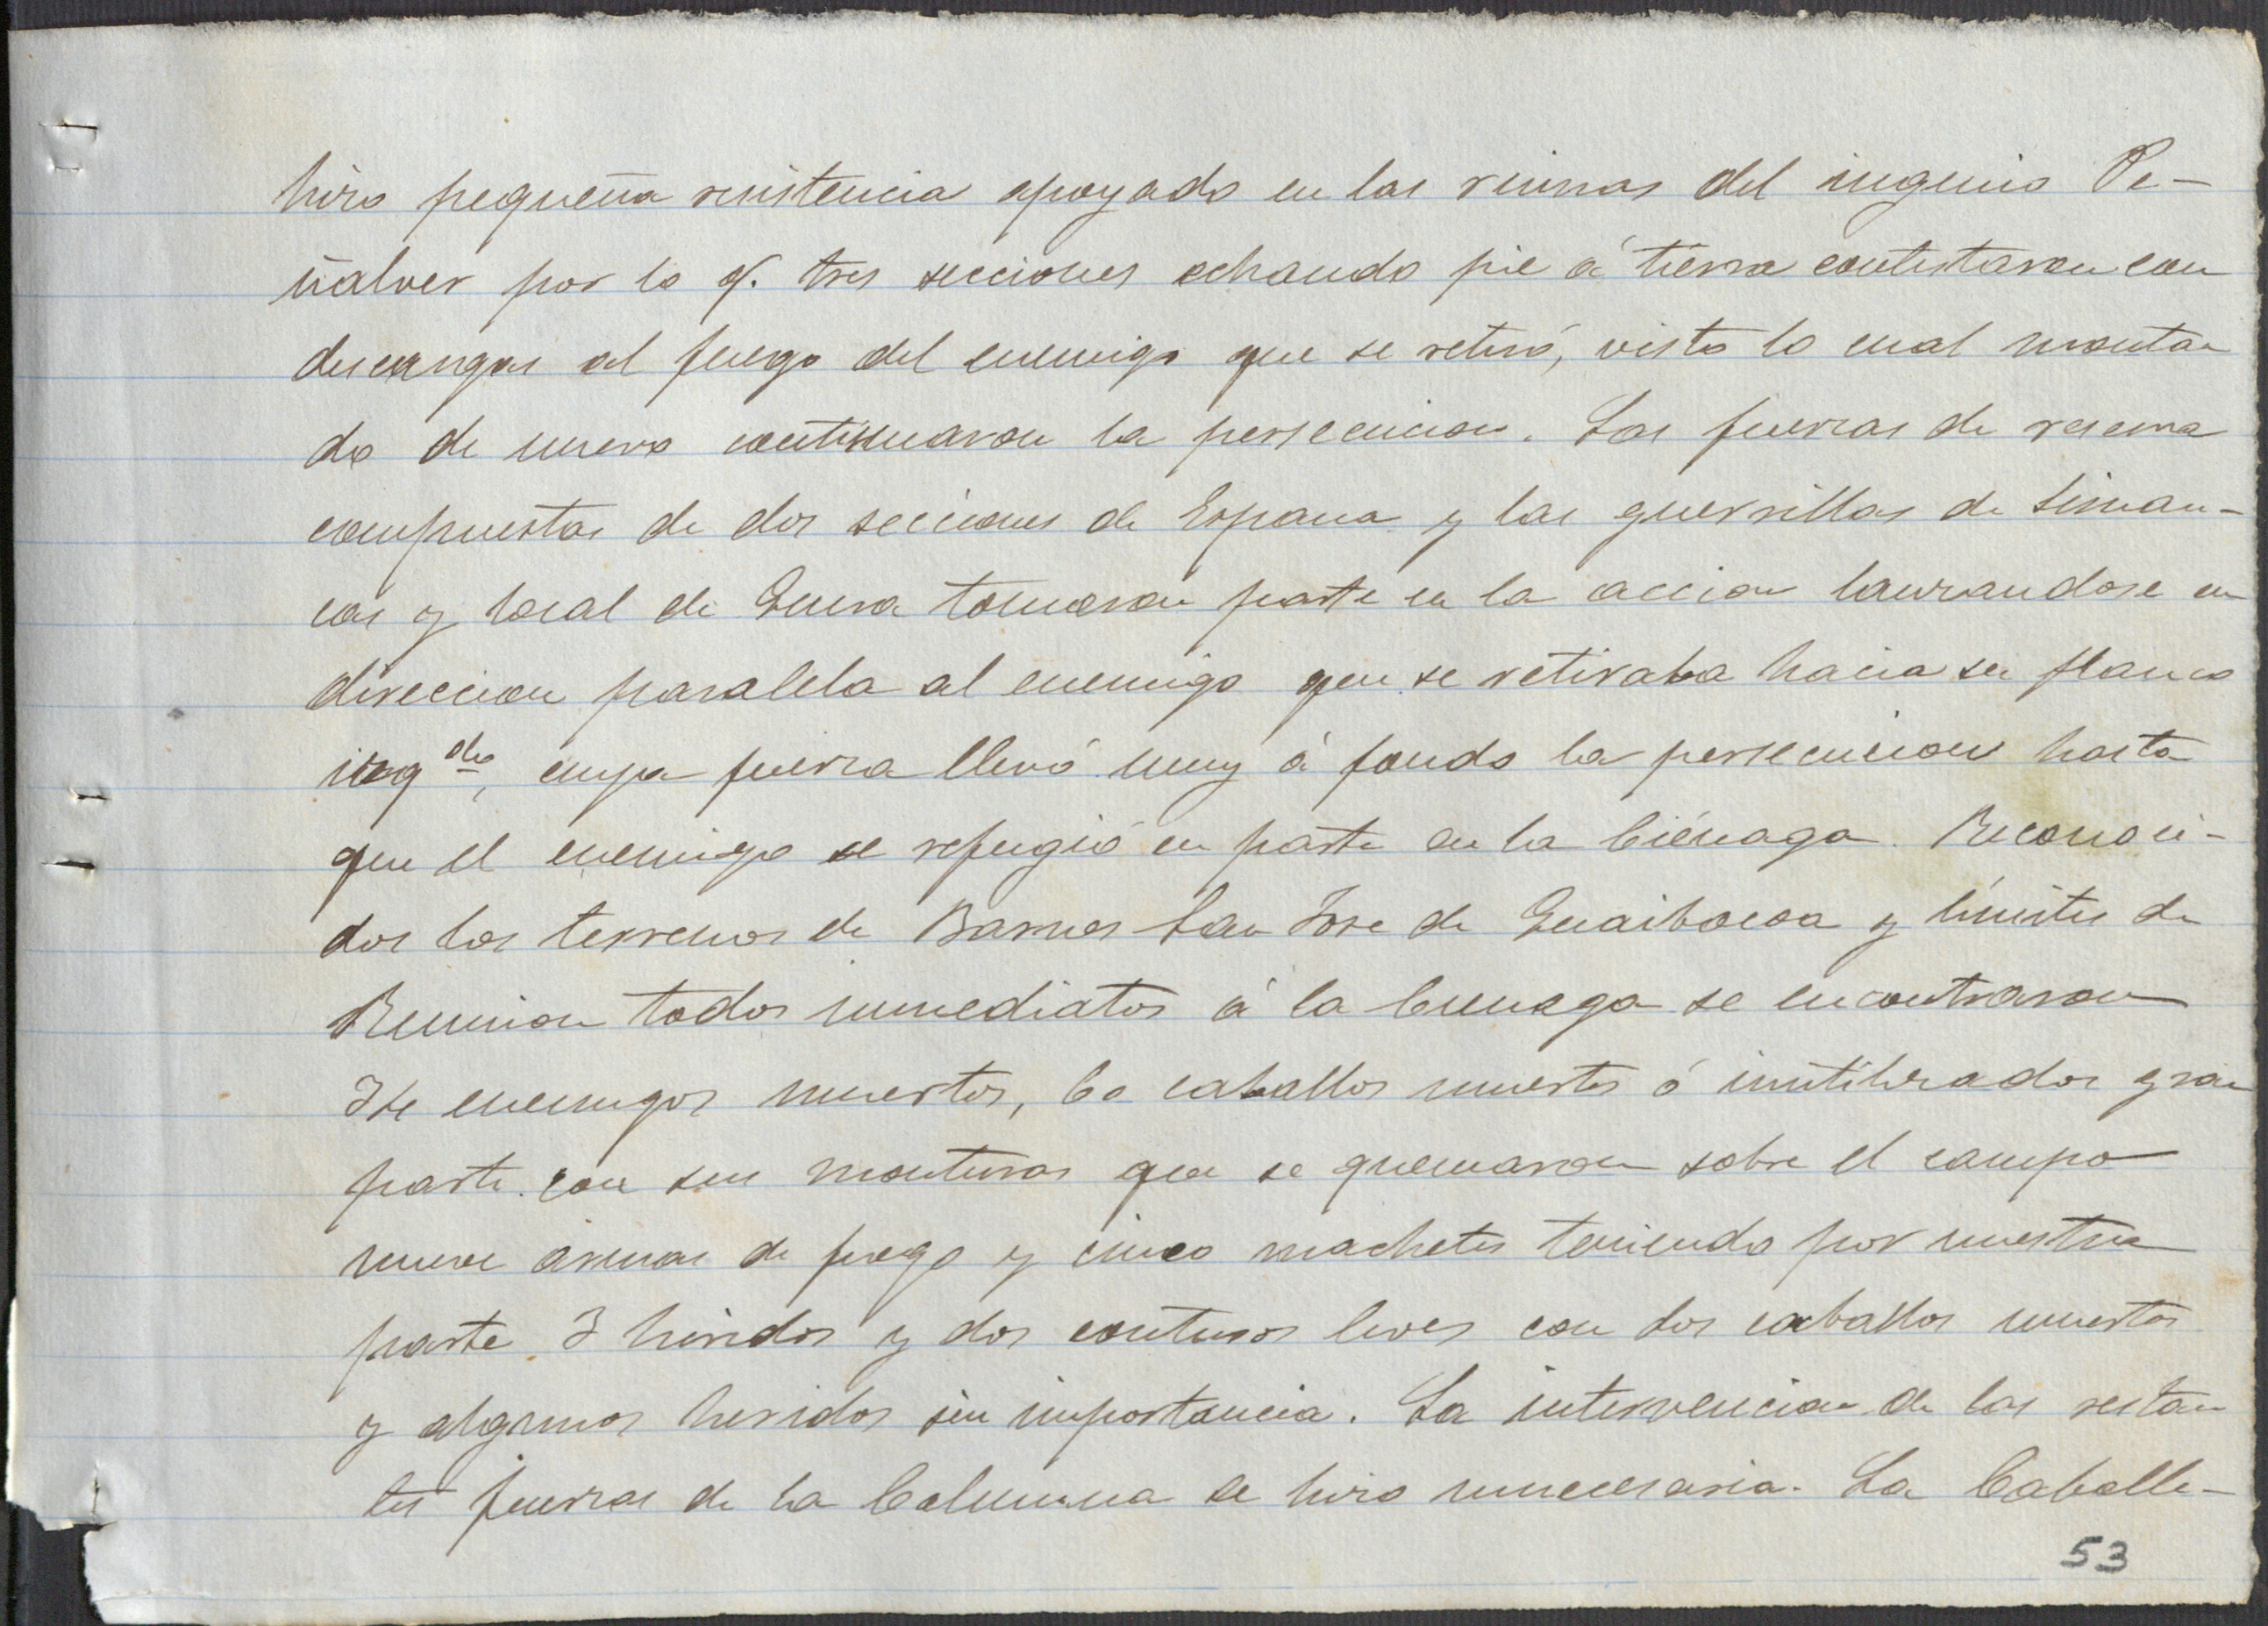 hizo pequeña resistencia apoyado en las ruinas del ingenio Pe-
ñalver por lo q. tres secciones echando pie á tierra contestaron con
descargas al fuego del enemigo que se retiró, visto lo cual montan
do de nuevo continuaron la persecucion. Las fuerzas de reserva
compuestas de dos secciones de España y las guerrillas de Siman-
cas y local de Guera tomaron parte en la accion lanzandose en
direccion paralela al enemigo que se retiraba hacia su flanco
izq do, cuya fuerza llevó muy á fondo la persecucion hasta
que el enemigo se refugió en parte en la Ciénaga. Reconoci-
dos los terrenos de Barros San Jose de Guaibacoa y límites de
Reunion todos inmediatos á la Cienaga se encontraron
enemigos muertos, 60 caballos muertos ó inutilizados gran
parte con sus monturas que se quemaron sobre el campo
nueve armas de fuego y cinco machetes teniendo por nuestra
parte 3 heridos y dos contusos leves con dos caballos muertos
y algunos heridos sin importancia. La intervencion de las restan
tes fuerzas de la Columna se hizo innecesaria. La Caballe-
53